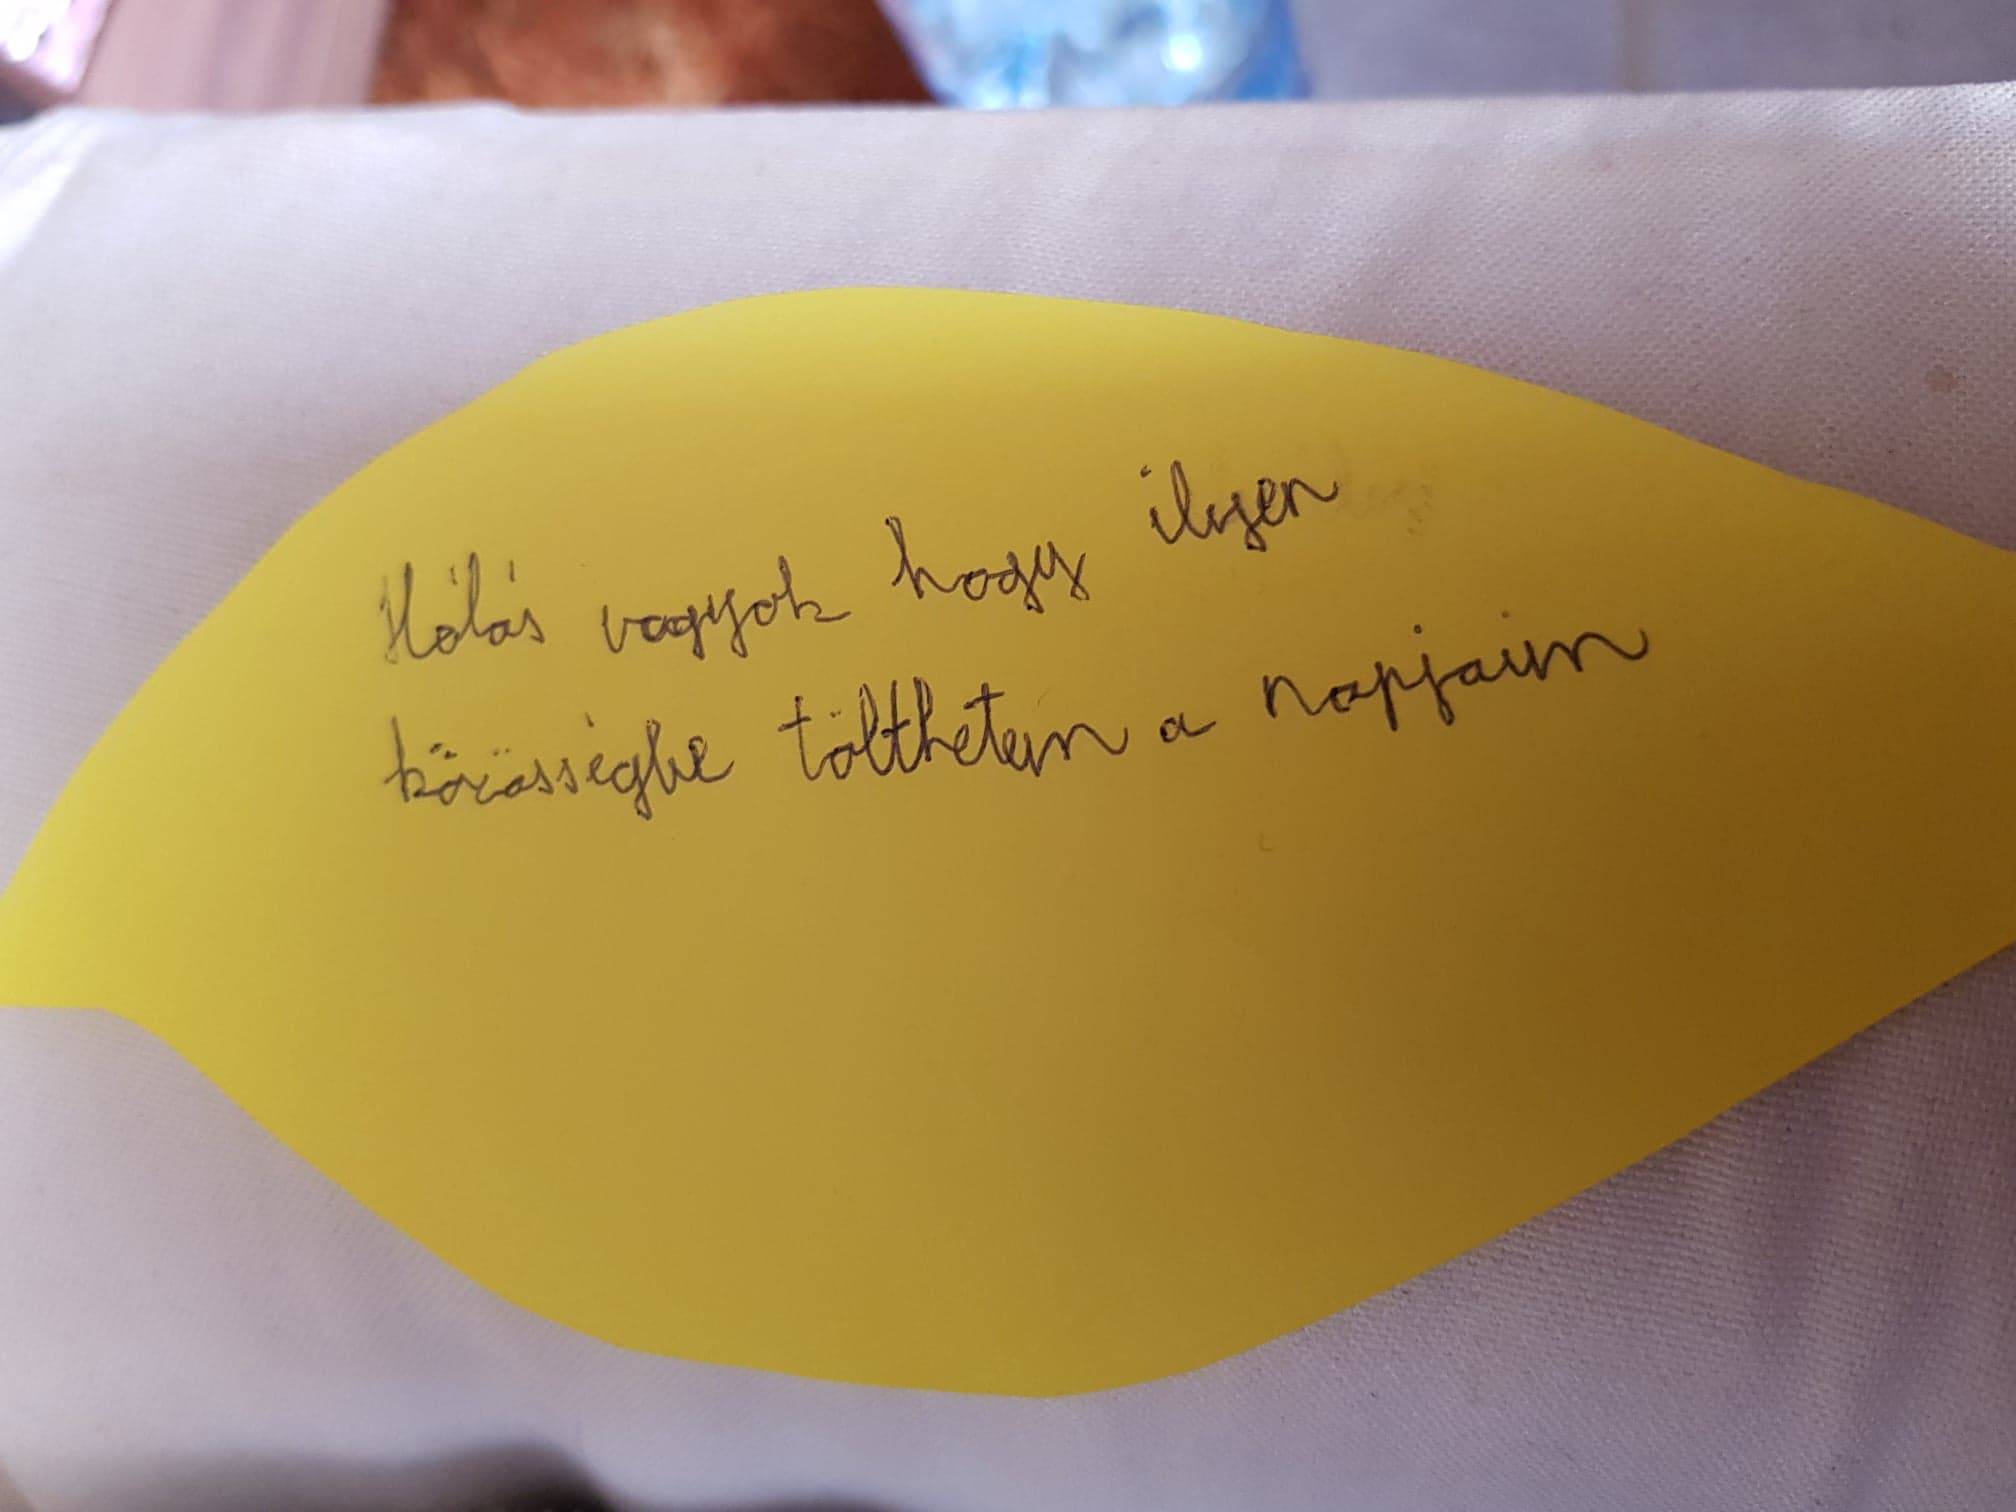 Hálás vagyok hogy ilyen
közösségbe tölthetem a napjaim